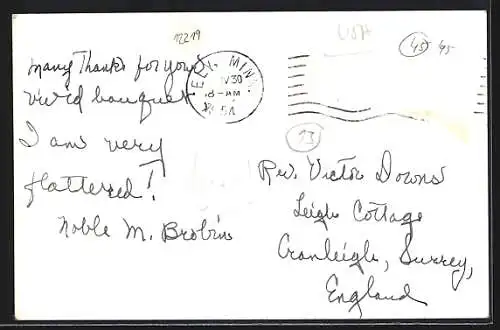 12219
USA
45 45
Many Thanks for your
vivid bouquet.
I am very
flattered!
Noble M. Brobin
MINN.
NOV 30
8-AM
13
Rev. Victor Downs
Leigh Cottage
Cranleigh, Surrey,
England